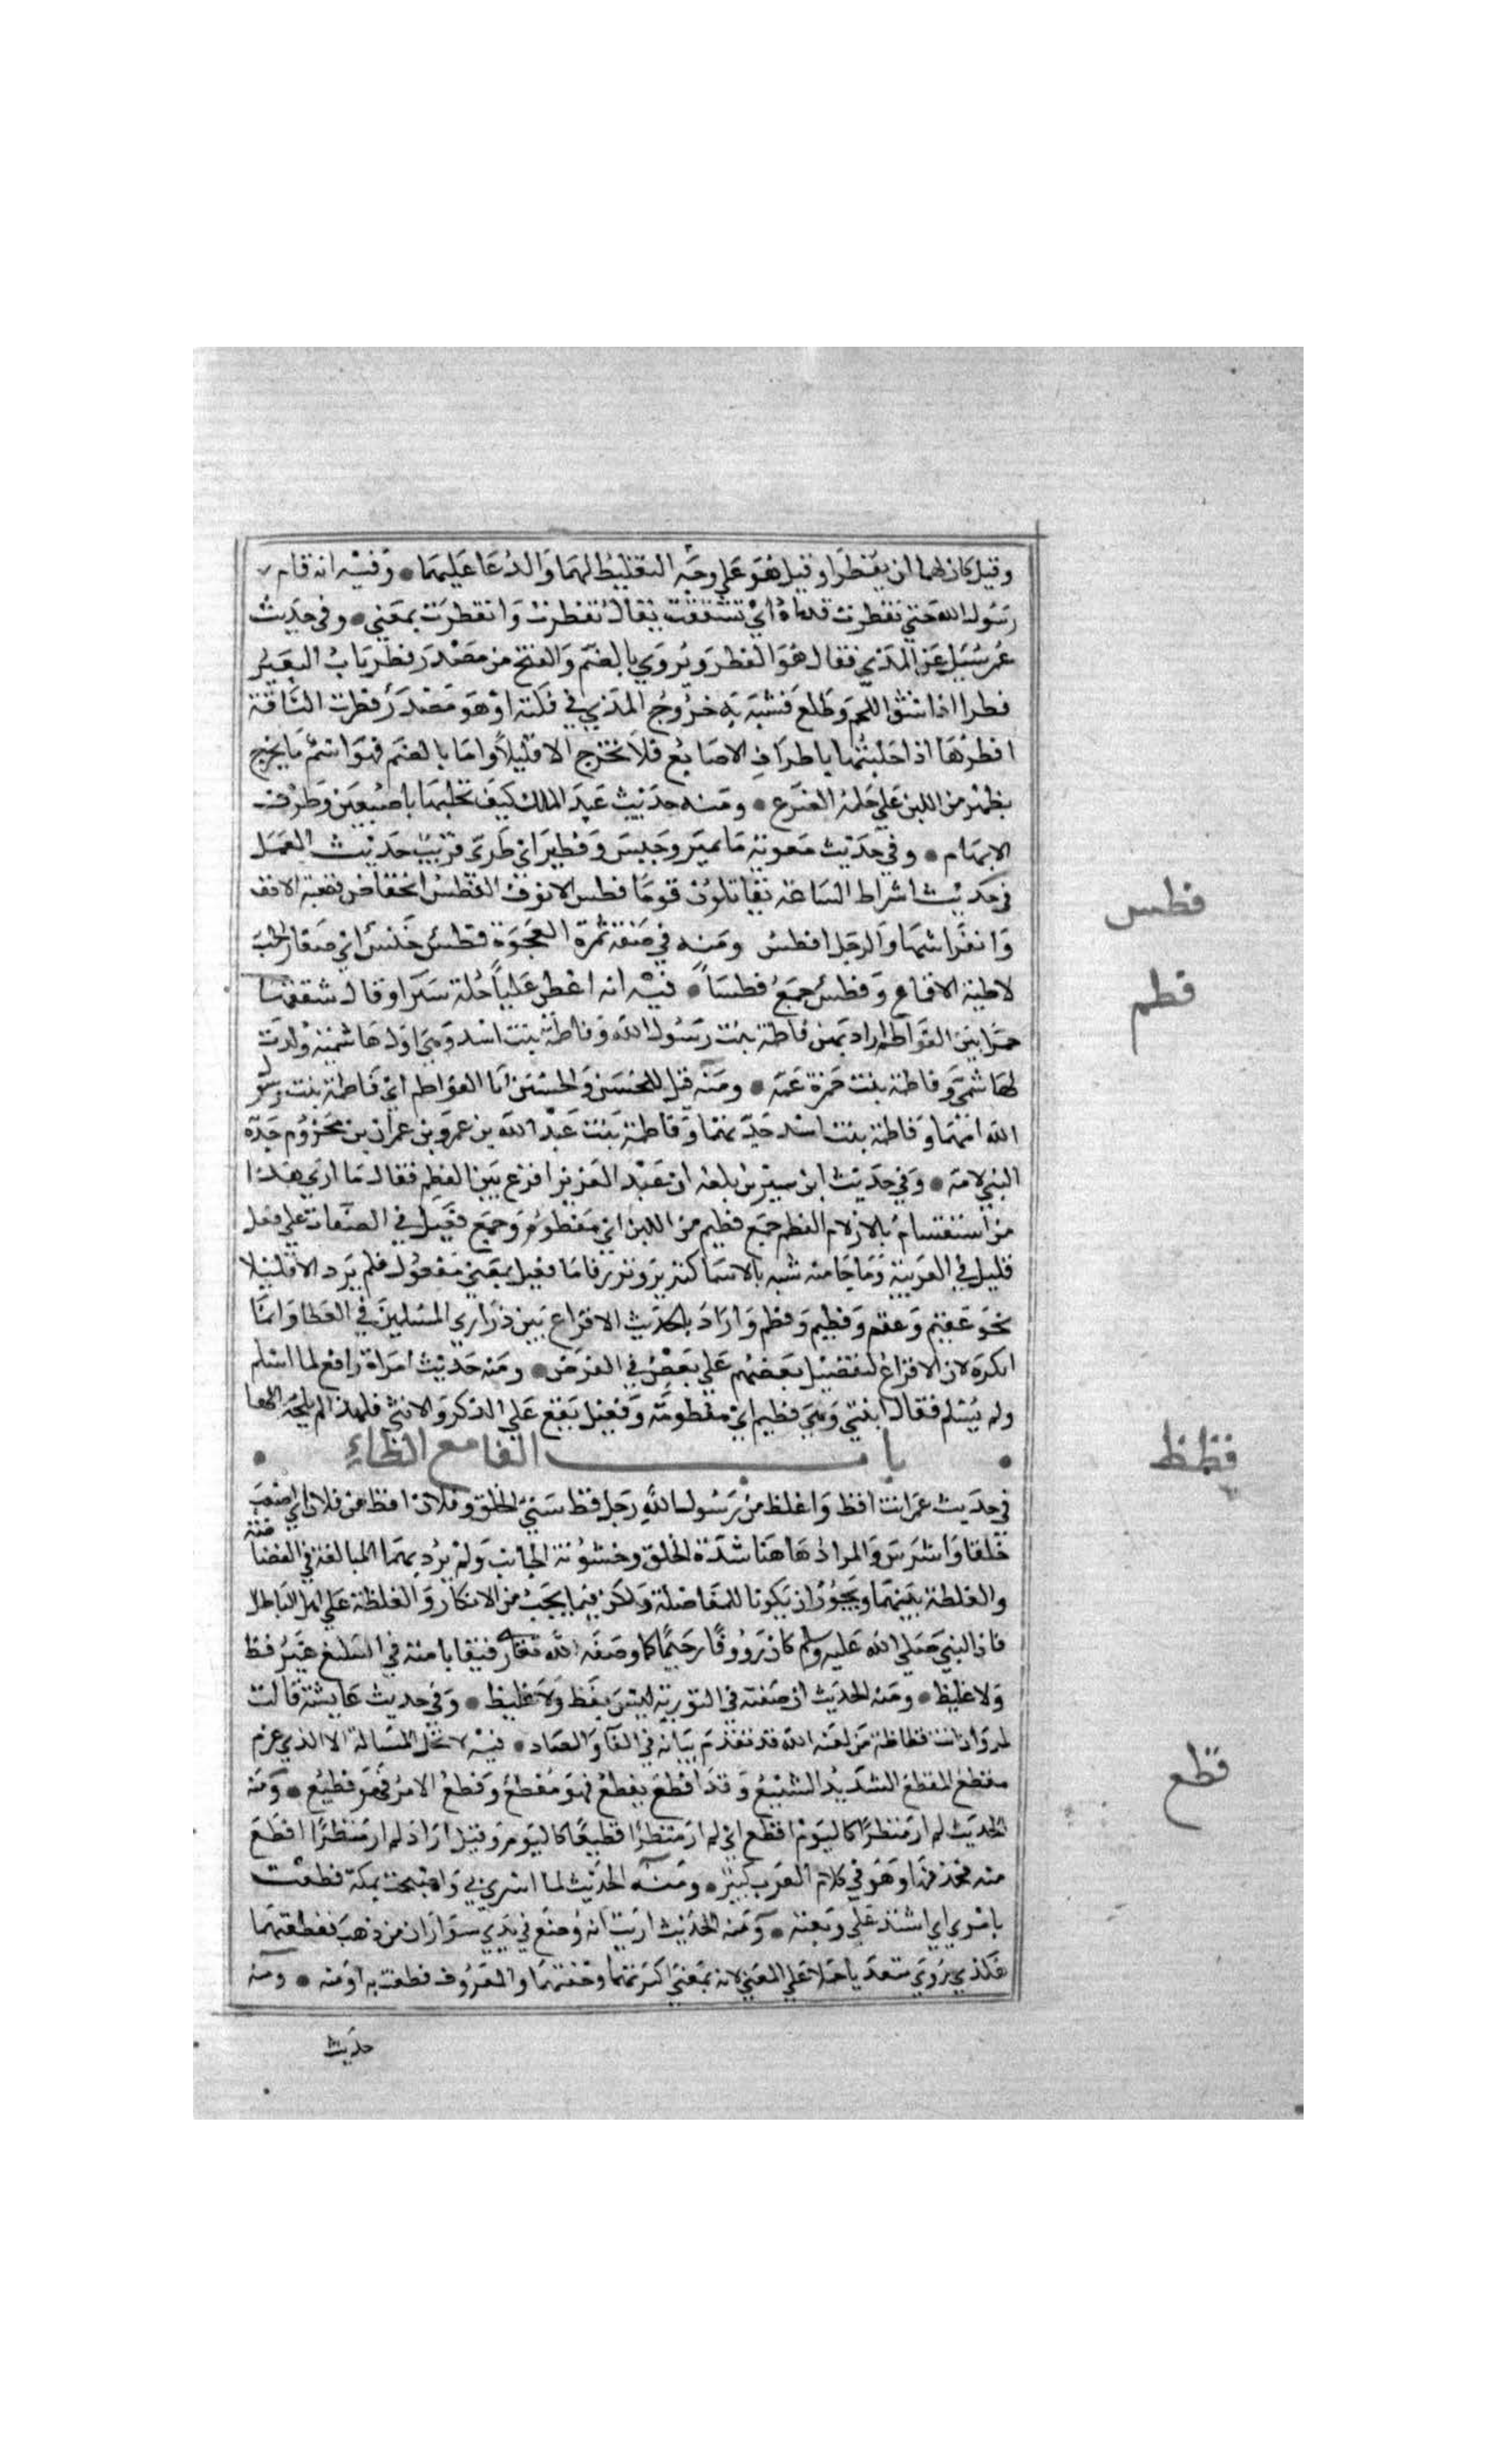 وقيل كان لهما ان يفطرا وقيل هو علي وجه التغليظ لهما والدعا عليهما • وفيه انه قام
رسول الله حتي تفطرت قدماه اي تشققت يقال تفطرت وانفطرت بمعني • وفي حديث
عمر سئيل عن المذي فقال هو الفطر ويروي بالضم والفتح من مصدر فطر ناب البعير
فطرا اذا شق اللحم وطلع فشبه به خروج المذي في قلته او هو مصدر فطرت الناقة
افطرها اذا حلبتها باطراف الاصابع فلا تخرج الا قليلا واما بالضم فهو اسم ما يخرج
يظهر من اللبن علي حلمة الضرع • ومنه حديث عبد الملك كيف تحلبها باصبعين وطرف
الابهام • وفي حديث معوية ما نمير وحيس وفطير اي طري قريب حديث العمل
فطس
في حديث اشراط الساعة تقاتلون قوما فطس الانوف الفطس انخفاض قصبة الانف
وانفراشها والرجل افطس ومنه في صفة تمرة العجوة فطس خنس اي صغار الحب
فطم
لاطية الاقماع وفطس جمع فطسا • فيه انه اعطي عليا حلة سيرا وقال شققها
خمرا بين الفواطم اراد بهن فاطمة بنت رسول الله وفاطمة بنت اسد وهي اول هاشمية ولدت
لهاشمي وفاطمة بنت حمزة عمه • ومنه قيل للحسن والحسين ابنا الفواطم اي فاطمة بنت رسول
الله امهما وفاطمة بنت اسد جدتهما وفاطمة بنت عبد الله بن عمرو بن عمران بن مخزوم جدة
النبي لامه • وفي حديث ابن سيرين بلغه ان عبد العزيز اقرع بين الفطم فقال ما اري هذا
من استقسام بالازلام الفطم جمع فطيم من اللبن اي مفطوم وجمع فعيل في الصفات علي فعل
قليل في العربية وما جا منه شبه بالاسما كنذير ونذر فاما فعيل بمعني مفعول فلم يرد الا قليلا
نحو عقيم وعقم وفطيم وفطم واراد بالحديث الاقراع بين ذراري المسلمين في العطا وانما
انكره لان الاقراع لتفضيل بعضهم علي بعض في الفرض • ومنه حديث امراة رافع لما اسلم
ولم تسلم فقال ابنتي وهي فطيم اي مفطومة وفعيل يقع علي الذكر والانثي فلهذا لم يلحقه الها
• باب الفا مع الظاء •
فظظ
في حديث عمر انت افظ واغلظ من رسول الله رجل فظ سيئ الخلق وفلان افظ من فلان اي اصعب
خلقا واشرس والمراد هاهنا شدة الخلق وخشونة الجانب ولم يرد بهما المبالغة في الفظاظة
والغلظة بينهما ويجوز ان يكونا للمفاضلة ولكن فيما يجب من الانكار والغلظة علي اهل الباطل
فان النبي صلي الله عليه وسلم كان رووفا رحيما كما وصفه الله تعالي رفيقا بامته في التبليغ غير فظ
ولا غليظ • ومنه الحديث ان صفته في التورية ليس بفظ ولا غليظ • وفي حديث عايشة قالت
لمروان انت فظاظة من لعنة الله قد تقدم بيانه في الفا والضاد • فيه لا تحل المسالة الا الذي غرم
فظع
مفظع المفظع الشديد الشنيع وقد افظع يفظع فهو مفظع وفظع الامر فهو فظيع • ومنه
الحديث لم ار منظرا كاليوم افظع اي لم ار منظرا فظيعا كاليوم وقيل اراد لم ار منظرا افظع
منه فحذفها وهو في كلام العرب كثير • ومنه الحديث لما اسري بي واصبحت بمكة فظعت
بامري اي اشتد علي وهبته • ومنه الحديث اريت انه وضع في يدي سواران من ذهب ففظعتهما
هكذي روي متعديا حملا علي المعني لانه بمعني اكبرتهما وخفتهما والمعروف فظعت به او منه • ومنه
حديث